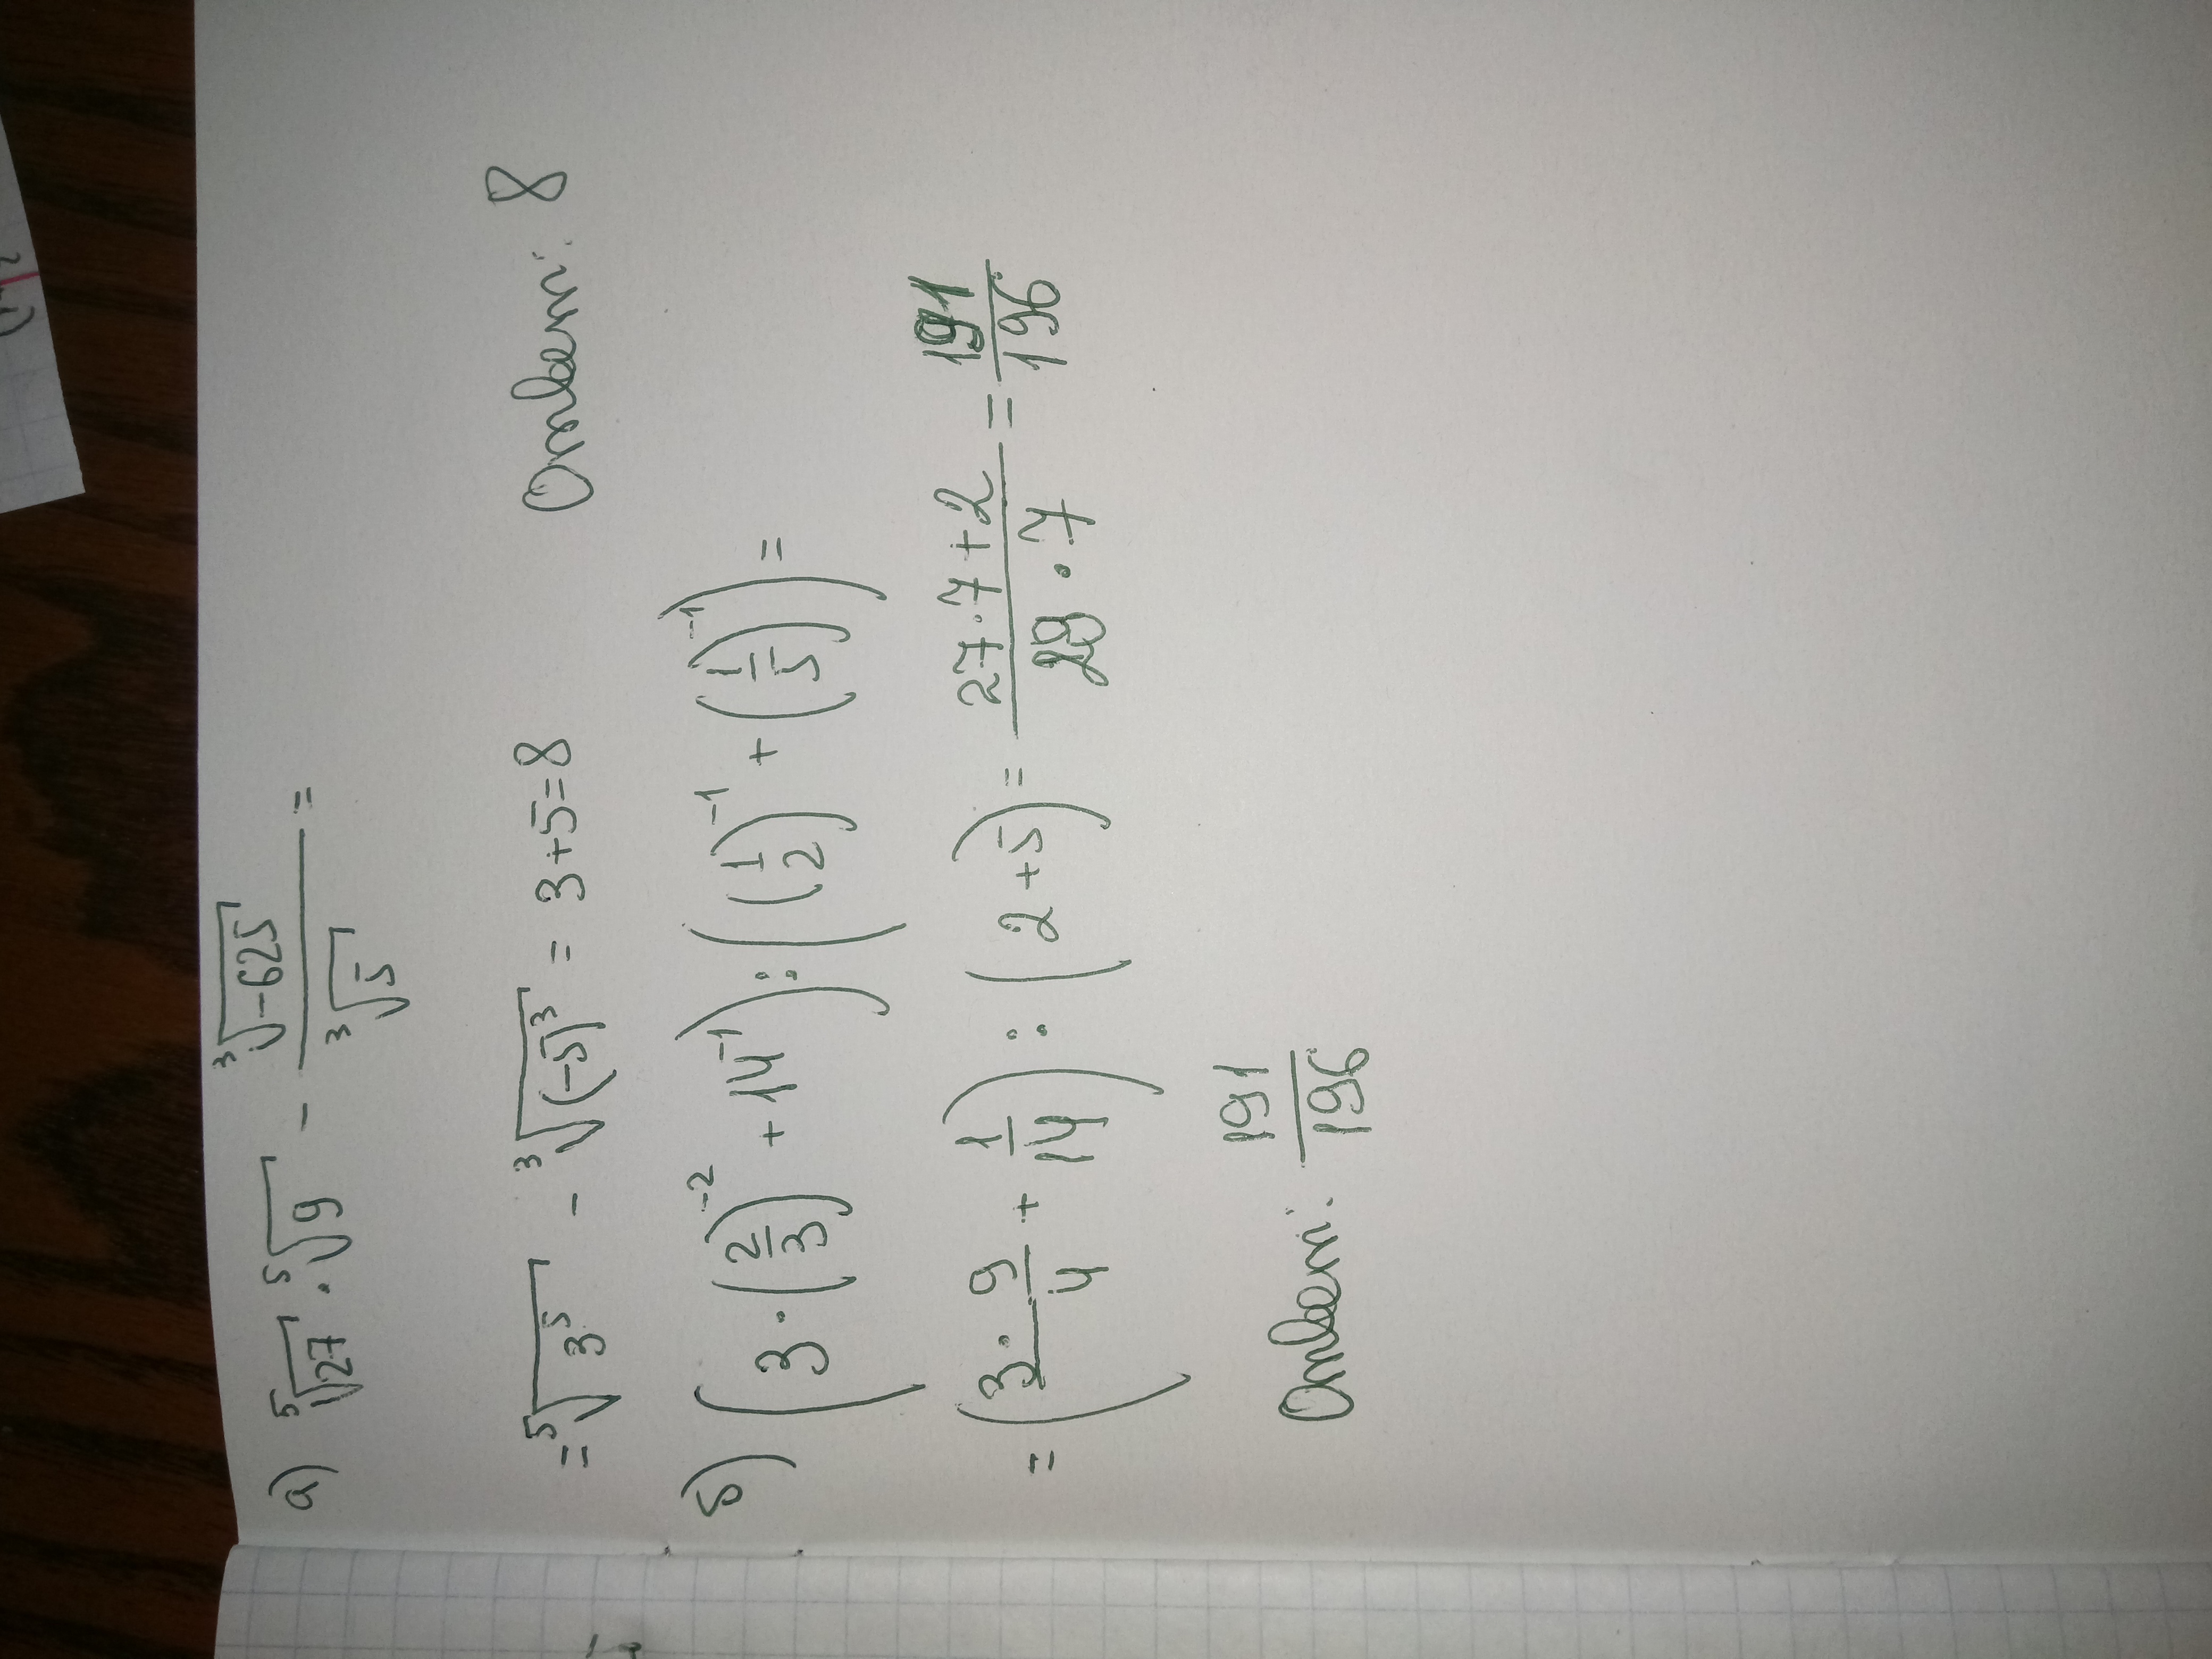 а) ⁵√27 · ⁵√9 − ³√−625 / ³√5 =
= ⁵√3⁵ − ³√(−5)³ = 3+5=8 Ответ: 8
б) (3 · (2/3)⁻² + 14⁻¹) : ((1/2)⁻¹ + (1/5)⁻¹) =
= (3 · 9/4 + 1/14) : (2 + 5) = 27·7+2 / 28 · 7 = 191/196
Ответ: 191/196